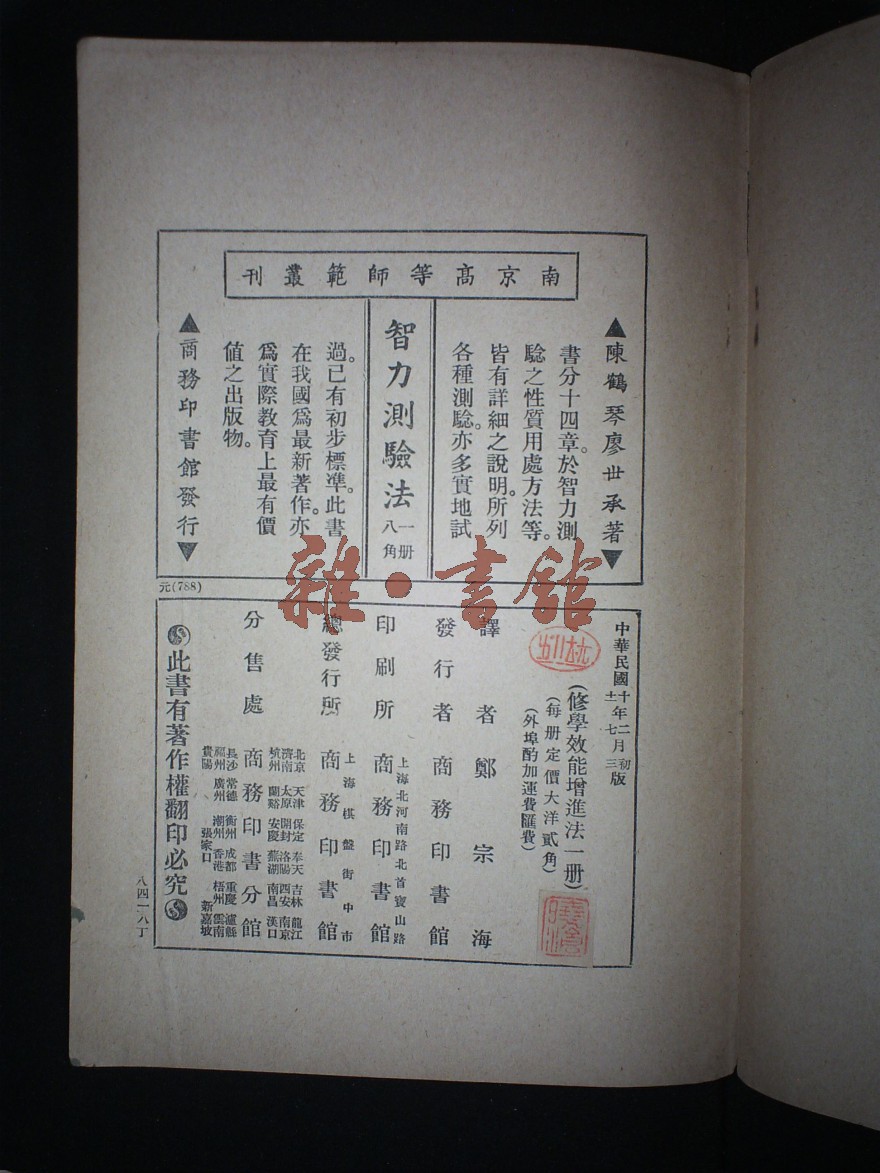 南京高等師範叢刊
▲陳鶴琴廖世承著▼
書分十四章。於智力測
驗之性質用處方法等。
皆有詳細之說明。所列
各種測驗。亦多實地試
智力測驗法
一册
八角
過。已有初步標準。此書
在我國爲最新著作。亦
爲實際教育上最有價
值之出版物。
▲商務印書館發行▼
元(788)
雜·書館
中華民國十年二月初版
十一年七月三版
(修學效能增進法一册)
(每册定價大洋貳角)
(外埠酌加運費匯費)
譯者 鄭宗海
發行者 商務印書館
上海北河南路北首寶山路
印刷所 商務印書館
上海棋盤街中市
總發行所 商務印書館
北京 天津 保定 奉天 吉林 龍江
濟南 太原 開封 洛陽 西安 南京
杭州 蘭谿 安慶 蕪湖 南昌 漢口
分售處 商務印書分館
長沙 常德 衡州 成都 重慶 瀘縣
福州 廣州 潮州 香港 梧州 雲南
貴陽 張家口 新嘉坡
此書有著作權翻印必究
八四一八丁